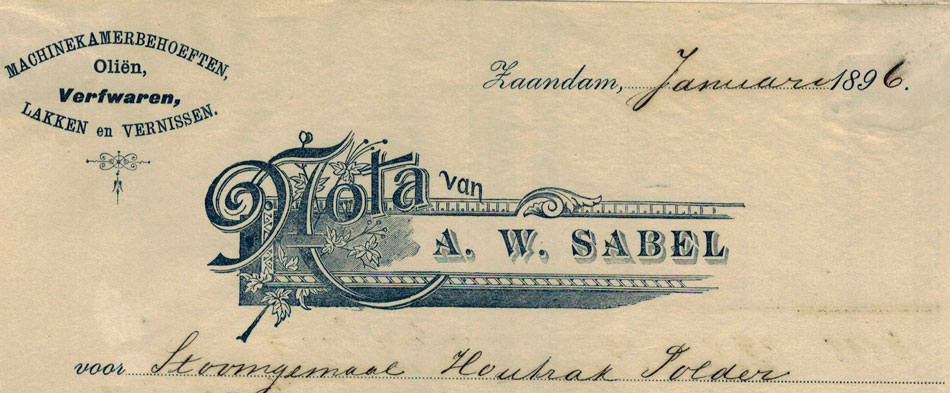 MACHINEKAMERBEHOEFTEN,
Oliën,
Verfwaren,
LAKKEN en VERNISSEN.
Zaandam, Januari 1896.
Nota van
A. W. SABEL
voor Stoomgemaal Houtrak Polder